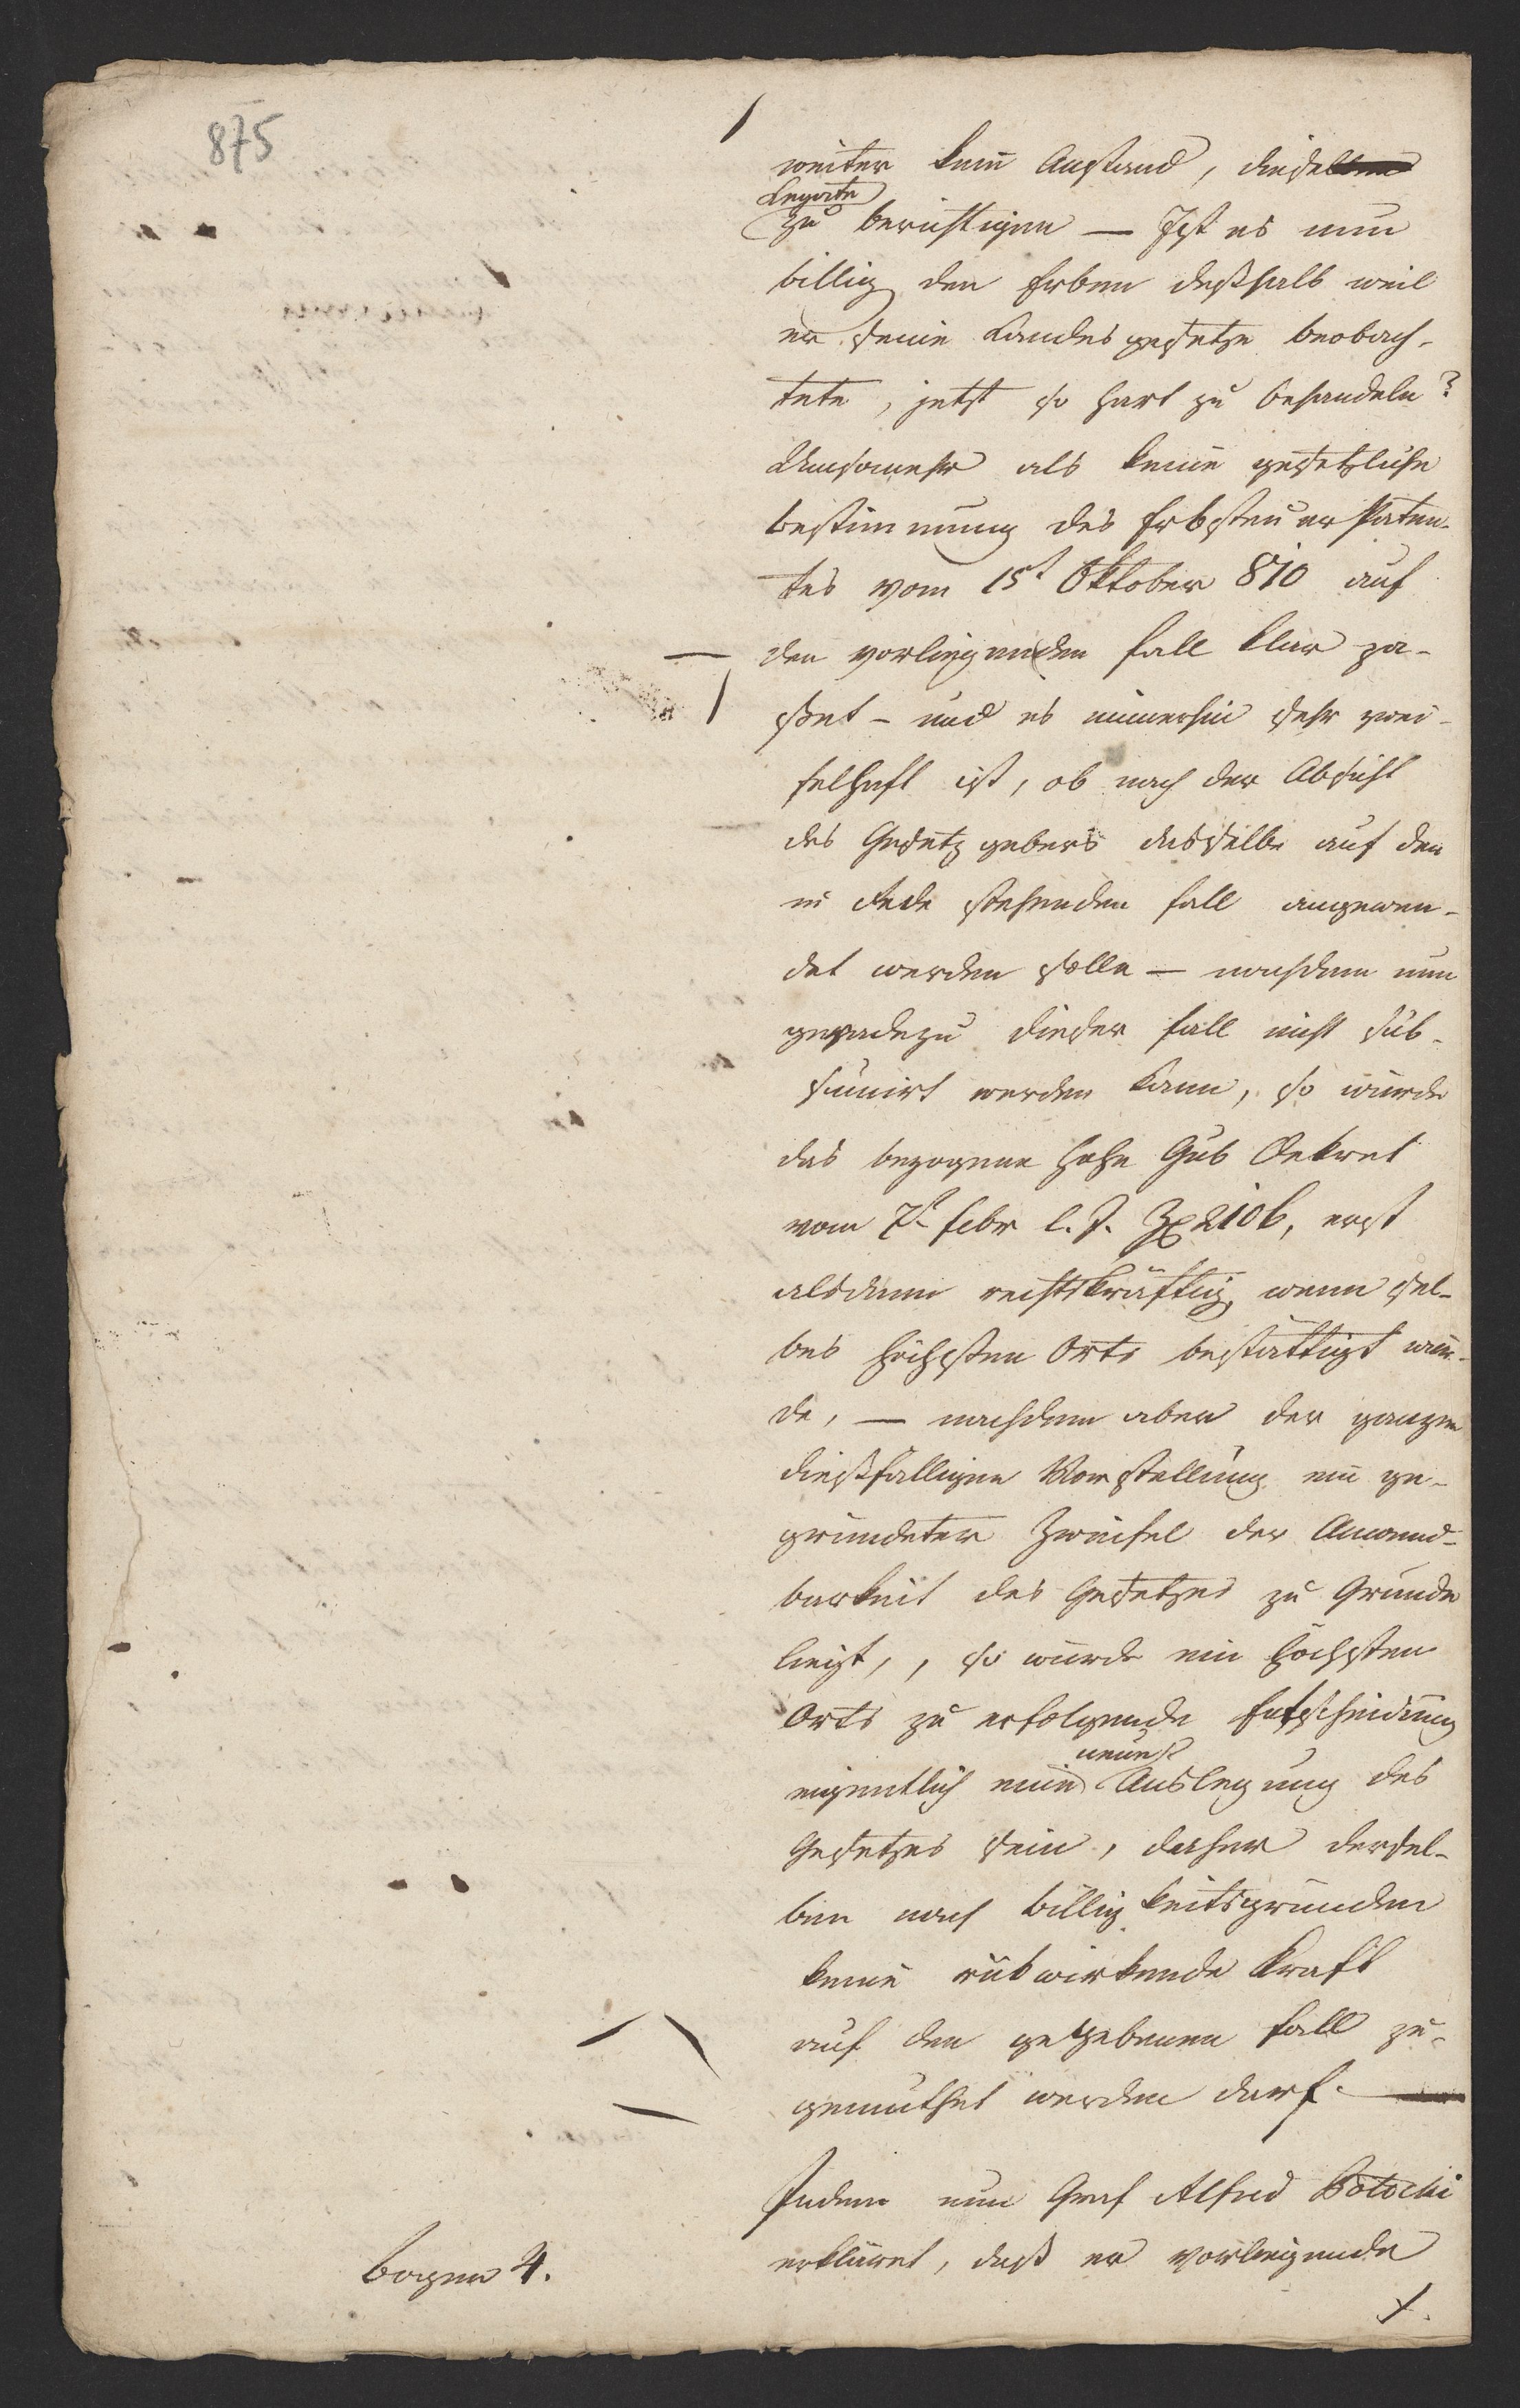 875
weiter kein Anstand, diese
Legate
zu berichtigen — Ist es nun
billig den Erben deßhalb weil
er seine Landesgesetze beobach-
tete, jetzt so hart zu behandeln?
Umsomehr als keine gesetzliche
bestimmung des Erbsteuer Paten-
tes vom 15t Oktober 810 auf
den vorliegenden Fall klar pa-
ßet – und es immerhin sehr zwei-
felhaft ist, ob nach der Absicht
des Gesetzgebers dasselbe auf den
in Rede stehenden Fall angewen-
det werden solle — nachdem nun
geradezu dieser Fall nicht sub-
sumirt werden kann, so würde
das bezogene hohe Gub Dekret
vom 7t Febr l. J. Z 2106, erst
alsdann rechtskräftig, wenn sel-
bes höchsten Orts bestättigt wür-
de, — nachdem aber der ganzen
dießfälligen Vorstellung ein ge-
gründeter Zweifel der Anwend-
barkeit des Gesetzes zu Grunde
liegt, , so würde ein höchsten
Orts zu erfolgende Entscheidung
neue
eigentlich eine Auslegung des
Gesetzes sein, daher dersel-
ben nach billigkeitsgründen
keine rükwirkende Kraft
auf den gegebenen Fall zu-
gemuthet werden darf. —
Indem nun Graf Alfred Potocki
erkläret, daß er vorliegende
bogen 4.